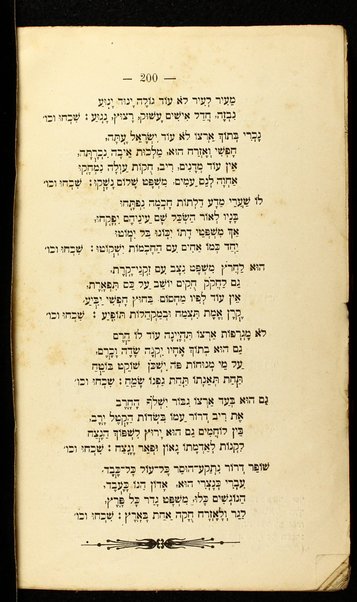 — 200 —
מֵעִיר לָעִיר לֹא עוֹד גּוֹלֶה יָנוּד יָנוּעַ
נִבְזֶה, חֲדַל אִישִׁים עָשׁוּק, רָצוּץ, נָגוּעַ: שִׁכְחוּ וכו׳
נָכְרִי בְּתוֹךְ אַרְצוֹ לֹא עוֹד יִשְׂרָאֵל עָתָּה,
חָפְשִׁי וְאֶזְרָח הוּא, מַלְכוּת אֵיבָה נִכְרָתָה,
אֵין עוֹד מְדָנִים, רִיב, חֻקּוֹת עַוְלָה נִמְחָקוּ
אַחֲוָה לְגַם עַמִּים, מִשְׁפָּט שָׁלוֹם נָשָׁקוּ: שִׁכְחוּ וכו׳
לוֹ שַׁעֲרֵי מַדָּע דַּלְתוֹת חָכְמָה נִפְתָּחוּ
בָּנָיו לְאוֹר הַשֵּׂכֶל שָׁם עֵינֵיהֶם יִפְקָחוּ,
אַךְ מִשְׁפְּטֵי דָתוֹ יִכּוֹנוּ בַּל יִמּוֹטוּ
יַחַד כְּמוֹ אַחִים עִם הַחָכְמוֹת יִשְׁקוֹטוּ: שִׁכְחוּ וכו׳
הוּא לַחֲרֹץ מִשְׁפָּט נִצָּב עִם זִקְנֵי־קָרֶת,
גַּם לַחֲקֹק חֻקִּים יוֹשֵׁב עַל כֵּס תִּפְאָרֶת,
אֵין עוֹד לְפִיו מַחְסוֹם, בְּחוּץ חָפְשִׁי יַבִּיעַ,
קֶרֶן אֱמֶת תִּצְמַח וּבְמַקְהֵלוֹת תּוֹפִיעַ: שִׁכְחוּ וכו׳
לֹא מֶגְרְפוֹת אַרְצוֹ תִּהְיֶינָה עוֹד לוֹ חֵרֶם
גַּם הוּא בְּתוֹךְ אֶחָיו יִקְנֶה שָׂדֶה וָכֶרֶם,
עַל מֵי מְנוּחוֹת פֹּה יִשְׁכֹּן שׁוֹקֵט בּוֹטֵחַ
תַּחַת תְּאֵנָתוֹ תַּחַת גַּפְנוֹ שָׂמֵחַ: שִׁכְחוּ וכו׳
גַּם הוּא בְּעַד אַרְצוֹ גִּבּוֹר יִשְׁלֹף הֶחָרֶב
אֶת רִיב דְּרוֹר עַמּוֹ בִּשְׂדוֹת הַקֶּטֶל יָרֶב,
בֵּין לוֹחֲמִים גַּם הוּא יָרוּץ לִשְׁפּוֹךְ הַנֵּצַח
לִקְנוֹת לְאַדְמָתוֹ גָּאוֹן וּפְאֵר וָנֶצַח: שִׁכְחוּ וכו׳
שׁוֹפַר דְּרוֹר נִתְקַע־הוּסַר כָּל־עוֹל כָּל־כָּבֶד,
עִבְרִי כְּנָצְרִי הוּא, אָדוֹן הִנּוֹ כָּעֶבֶד,
הַנּוֹגְשִׂים כָּלוּ, מִשְׁפָּט גָּדַר כָּל פָּרֶץ,
לַגֵּר וְלָאֶזְרָח חֻקָּה אַחַת בָּאָרֶץ: שִׁכְחוּ וכו׳